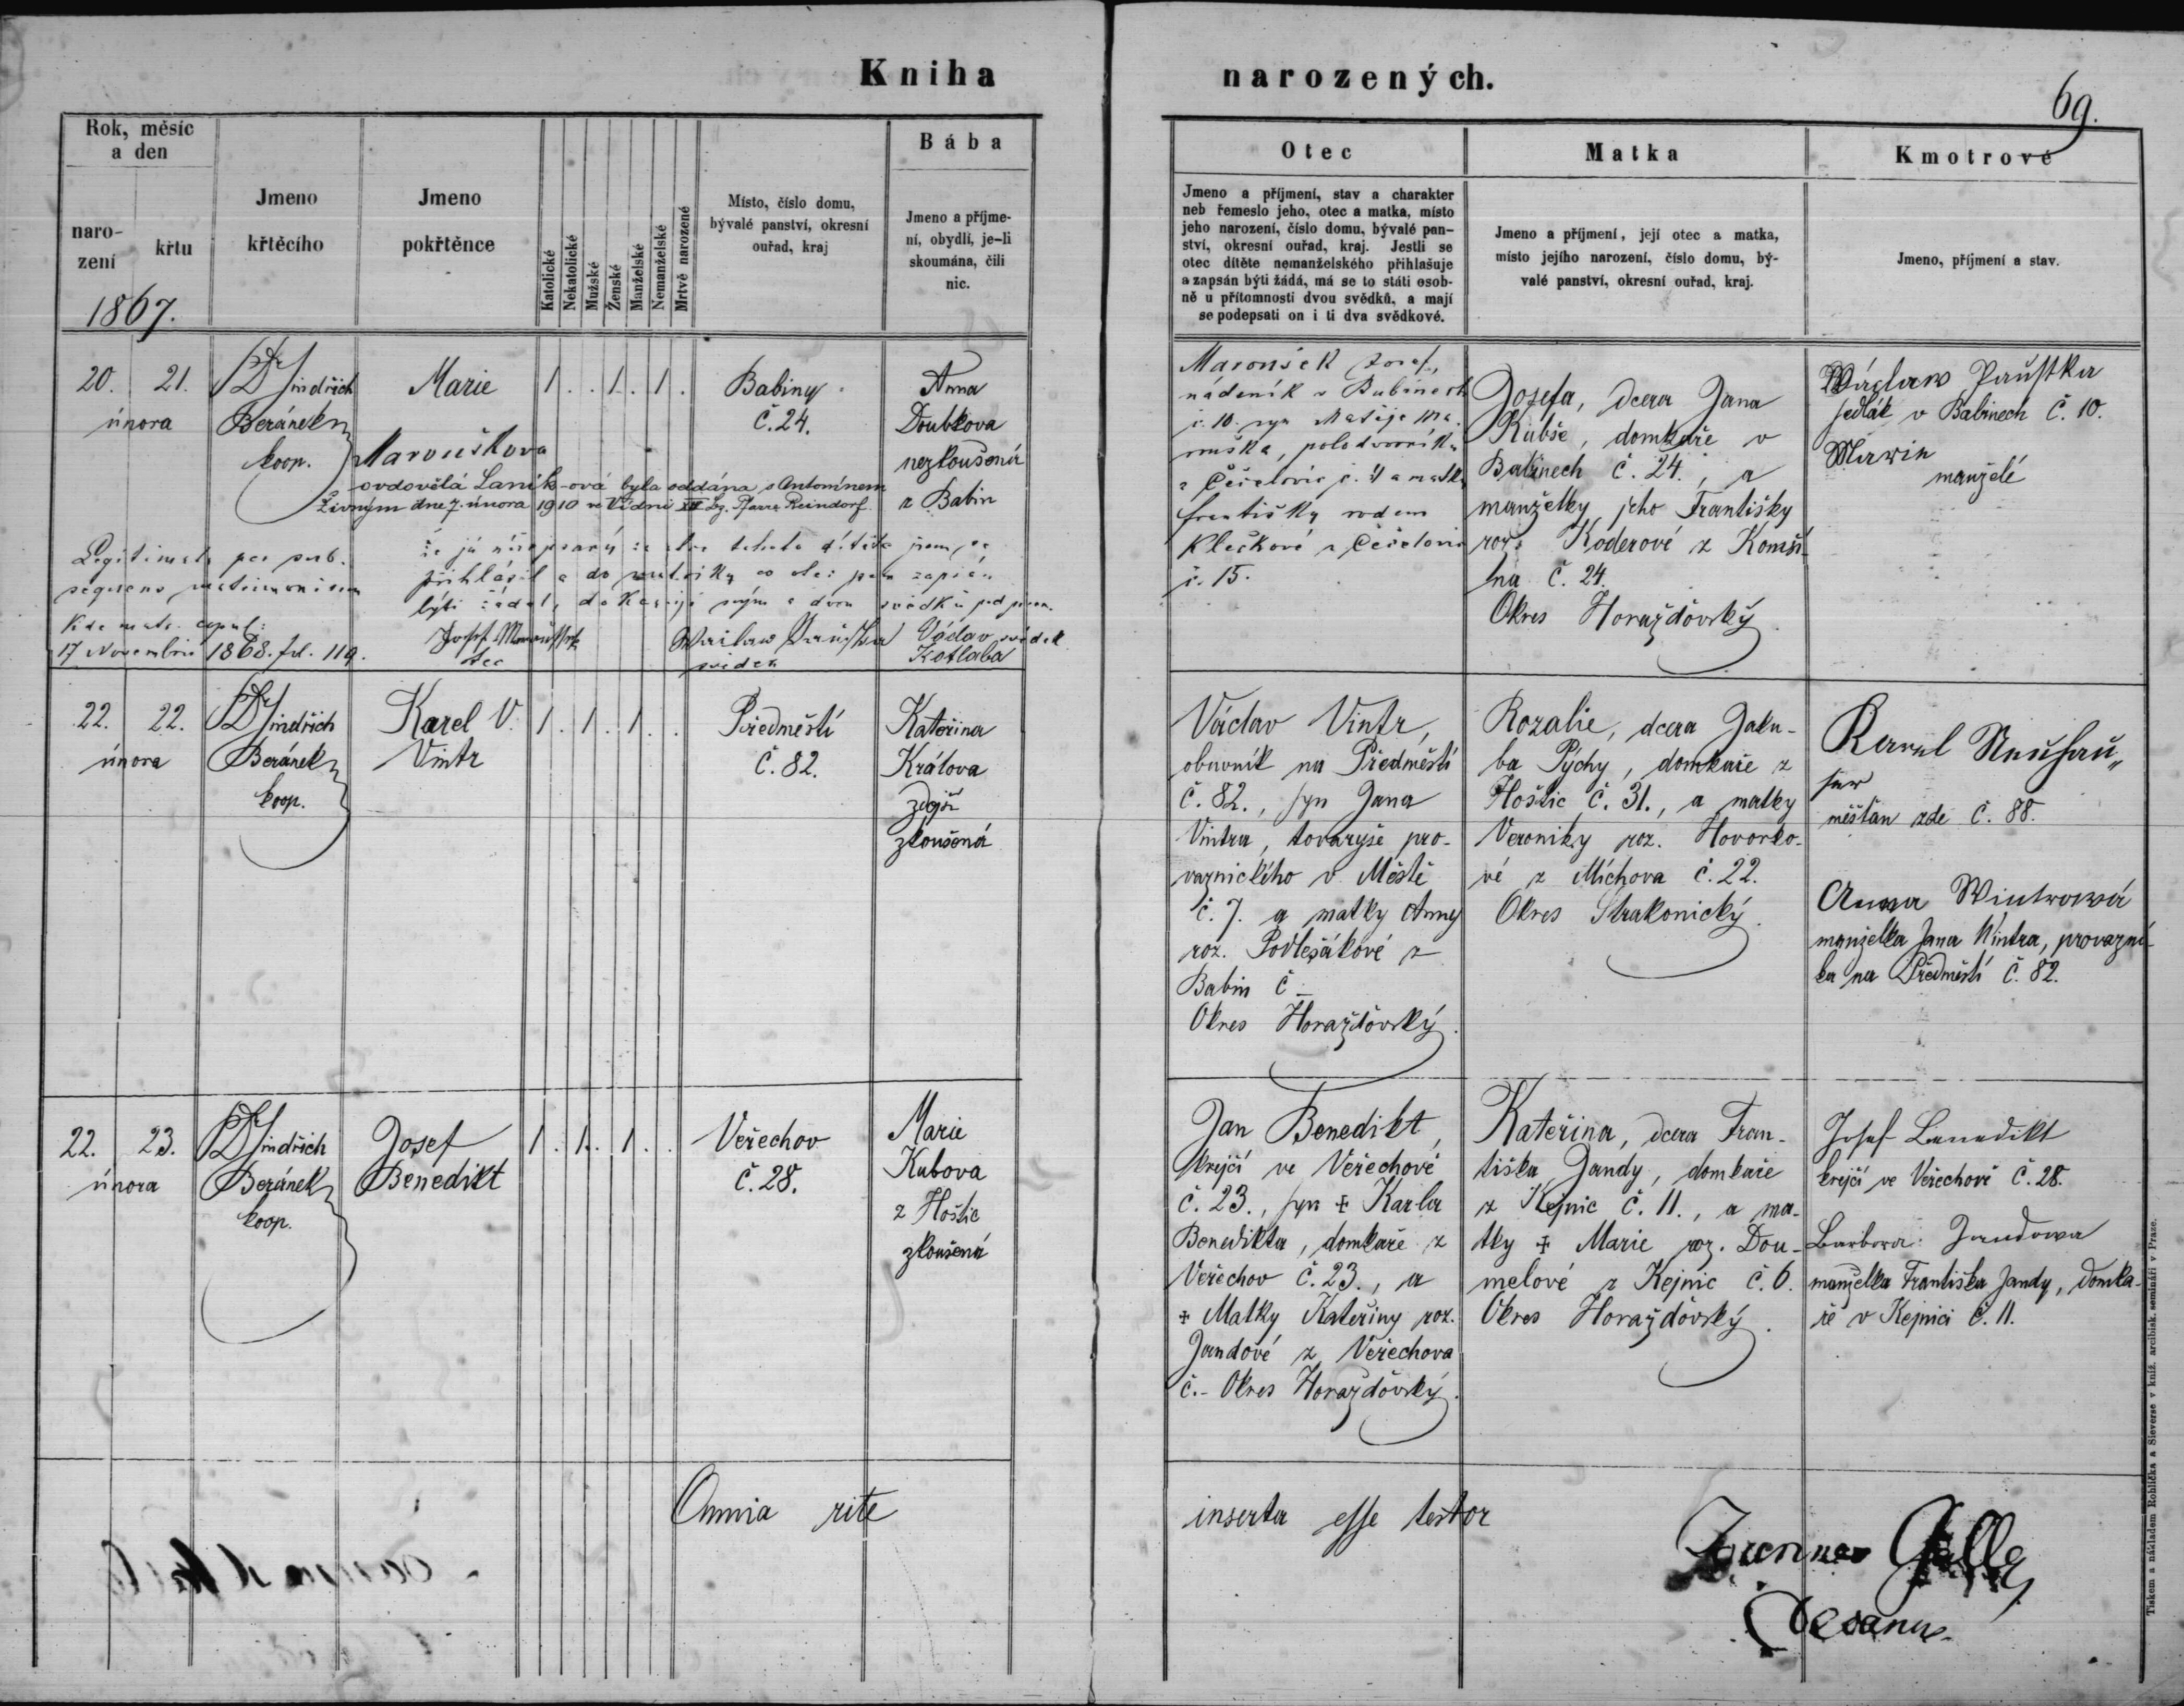 Kniha narozených.
69.
Rok, měsíc a den
narození
křtu
1867.
Jmeno křtěcího
Jmeno pokřtěnce
Katolické
Nekatolické
Mužské
Ženské
Manželské
Nemanželské
Mrtvě narozené
Místo, číslo domu,
bývalé panství, okresní
ouřad, kraj
Bába
Jmeno a příjme-
ní, obydlí, je-li
skoumána, čili
nic.
Otec
Jmeno a příjmení, stav a charakter
neb řemeslo jeho, otec a matka, místo
jeho narození, číslo domu, bývalé pan-
ství, okresní ouřad, kraj. Jestli se
otec dítěte nemanželského přihlašuje
a zapsán býti žádá, má se to státi osob-
ně u přítomnosti dvou svědků, a mají
se podepsati on i ti dva svědkové.
Matka
Jmeno a příjmení, její otec a matka,
místo jejího narození, číslo domu, bý-
valé panství, okresní ouřad, kraj.
Kmotrové
Jmeno, příjmení a stav.
20. 21.
února
Jindřich
Beránek
koop.
Marie
Marouškova
ovdovělá Laník-ová byla oddána s Antonínem
Živným dne 7. února 1910 ve Vídni Pfarre Reindorf
1 . . 1 . 1 .
Babiny
č. 24.
Anna
Doubkova
nezkoušená
z Babin
Legitimata per sub-
sequens matrimonium
17 Novembris 1868. fol. 119.
přihlásil a do matriky co otec jsem zapsán
býti žádal,
otec
svědek
Václav svědek
Kotlaba
Maroušek Josef,
nádeník v Babinech
č. 10. syn Matěje Ma-
z Čečelovic č. 4 a matky
Františky rodem
Klečkové z Čečelovic
č. 15.
Josefa, dcera Jana
Kubše, domkáře v
Babinech č. 24., a
manželky jeho Františky
roz. Koderové z Komši-
na č. 24.
Okres Horažďovský.
Wáclaw Pauſtka
sedlák v Babinech č. 10.
manželé
22. 22.
února
Jindřich
Beránek
koop.
Karel V.
Vintr
1 . 1 . 1 . .
Předměstí
č. 82.
Kateřina
Králova
zdejší
zkoušená
Václav Vintr,
obuvník na Předměstí
č. 82., syn Jana
Vintra, tovaryše pro-
vaznického v Městě
č. 7. a matky Anny
roz. Podlešákové z
Babin č –
Okres Horažďovský.
Rozalie, dcera Jaku-
ba Pýchy, domkáře z
Hoštic č. 31., a matky
Veroniky roz. Hovorko-
vé z Míchova č. 22.
Okres Strakonický.
Karel Neuhau„
ser
měšťan zde č. 88.
Anna Wintrowá
manželka Jana Wintra, provazní-
ka na Předměstí č. 82.
22. 23.
února
Jindřich
Beránek
koop.
Josef
Benedikt
1 . 1 . 1 . .
Veřechov
č. 28.
Marie
Kubova
z Hoštic
zkoušená
Jan Benedikt,
krejčí ve Veřechově
č. 23., syn ✝ Karla
Benedikta, domkáře z
Veřechov č. 23., a
✝ Matky Kateřiny roz.
Jandové z Veřechova
č. – Okres Horažďovský.
Kateřina, dcera Fran-
tiška Jandy, domkáře
z Kejnic č. 11., a ma-
tky ✝ Marie roz. Dou-
melové z Kejnic č. 6.
Okres Horažďovský.
Josef Benedikt
krejčí ve Veřechově č. 28.
Barbora Jandowa
manželka Františka Jandy, domka-
ře v Kejnici č. 11.
Omnia rite inserta eſſe testor
Decanus
Tiskem a nákladem Rohlíčka a Sieverse v kníž. arcibisk. semináři v Praze.